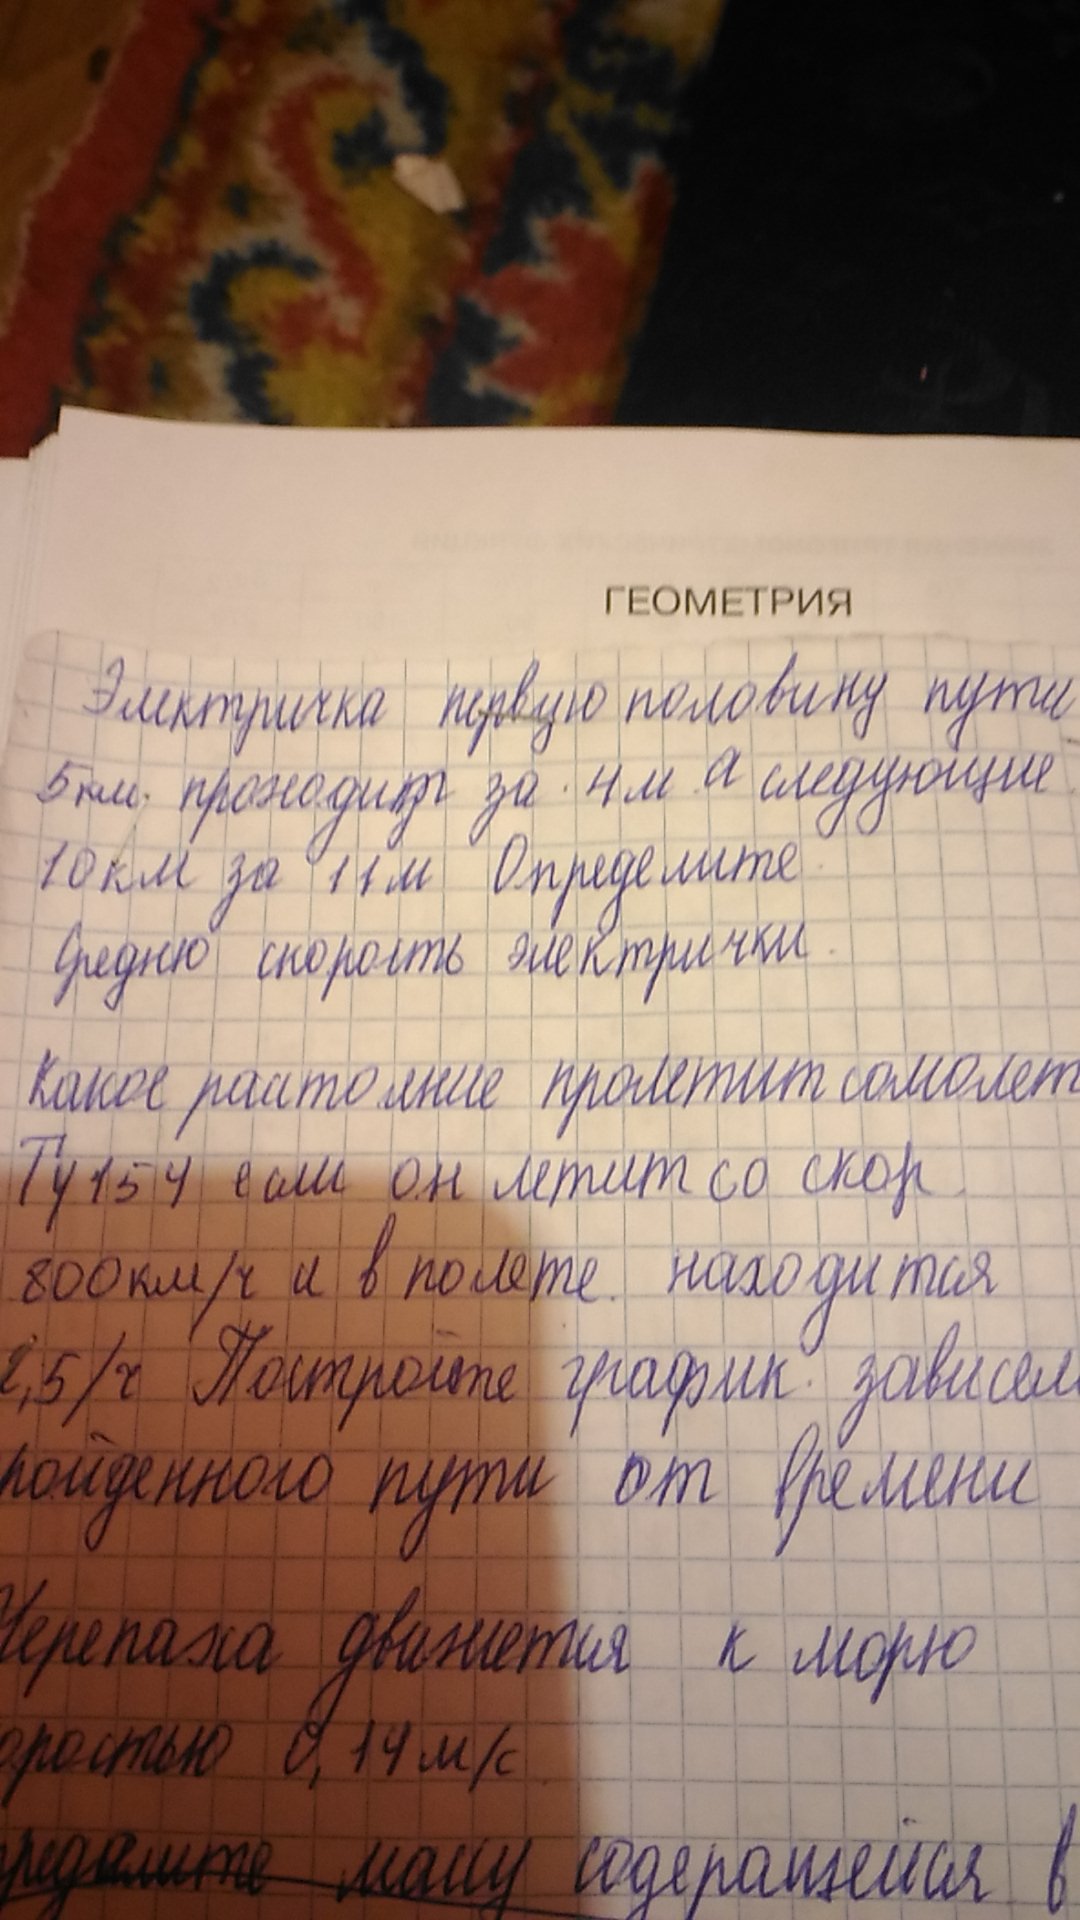 ГЕОМЕТРИЯ
Электричка первую половину пути
5км. проходит за 4м а следующие
10км за 11м Определите
Среднюю скорость электрички.
Какое растояние пролетит самолет
Ту154 если он летит со скор.
800км/ч и в полете. находится
,5/ч Постройте график зависем
ройденного пути от времени
Черепаха движется к морю
оростью 0,14м/с
ределите массу содеращейся в